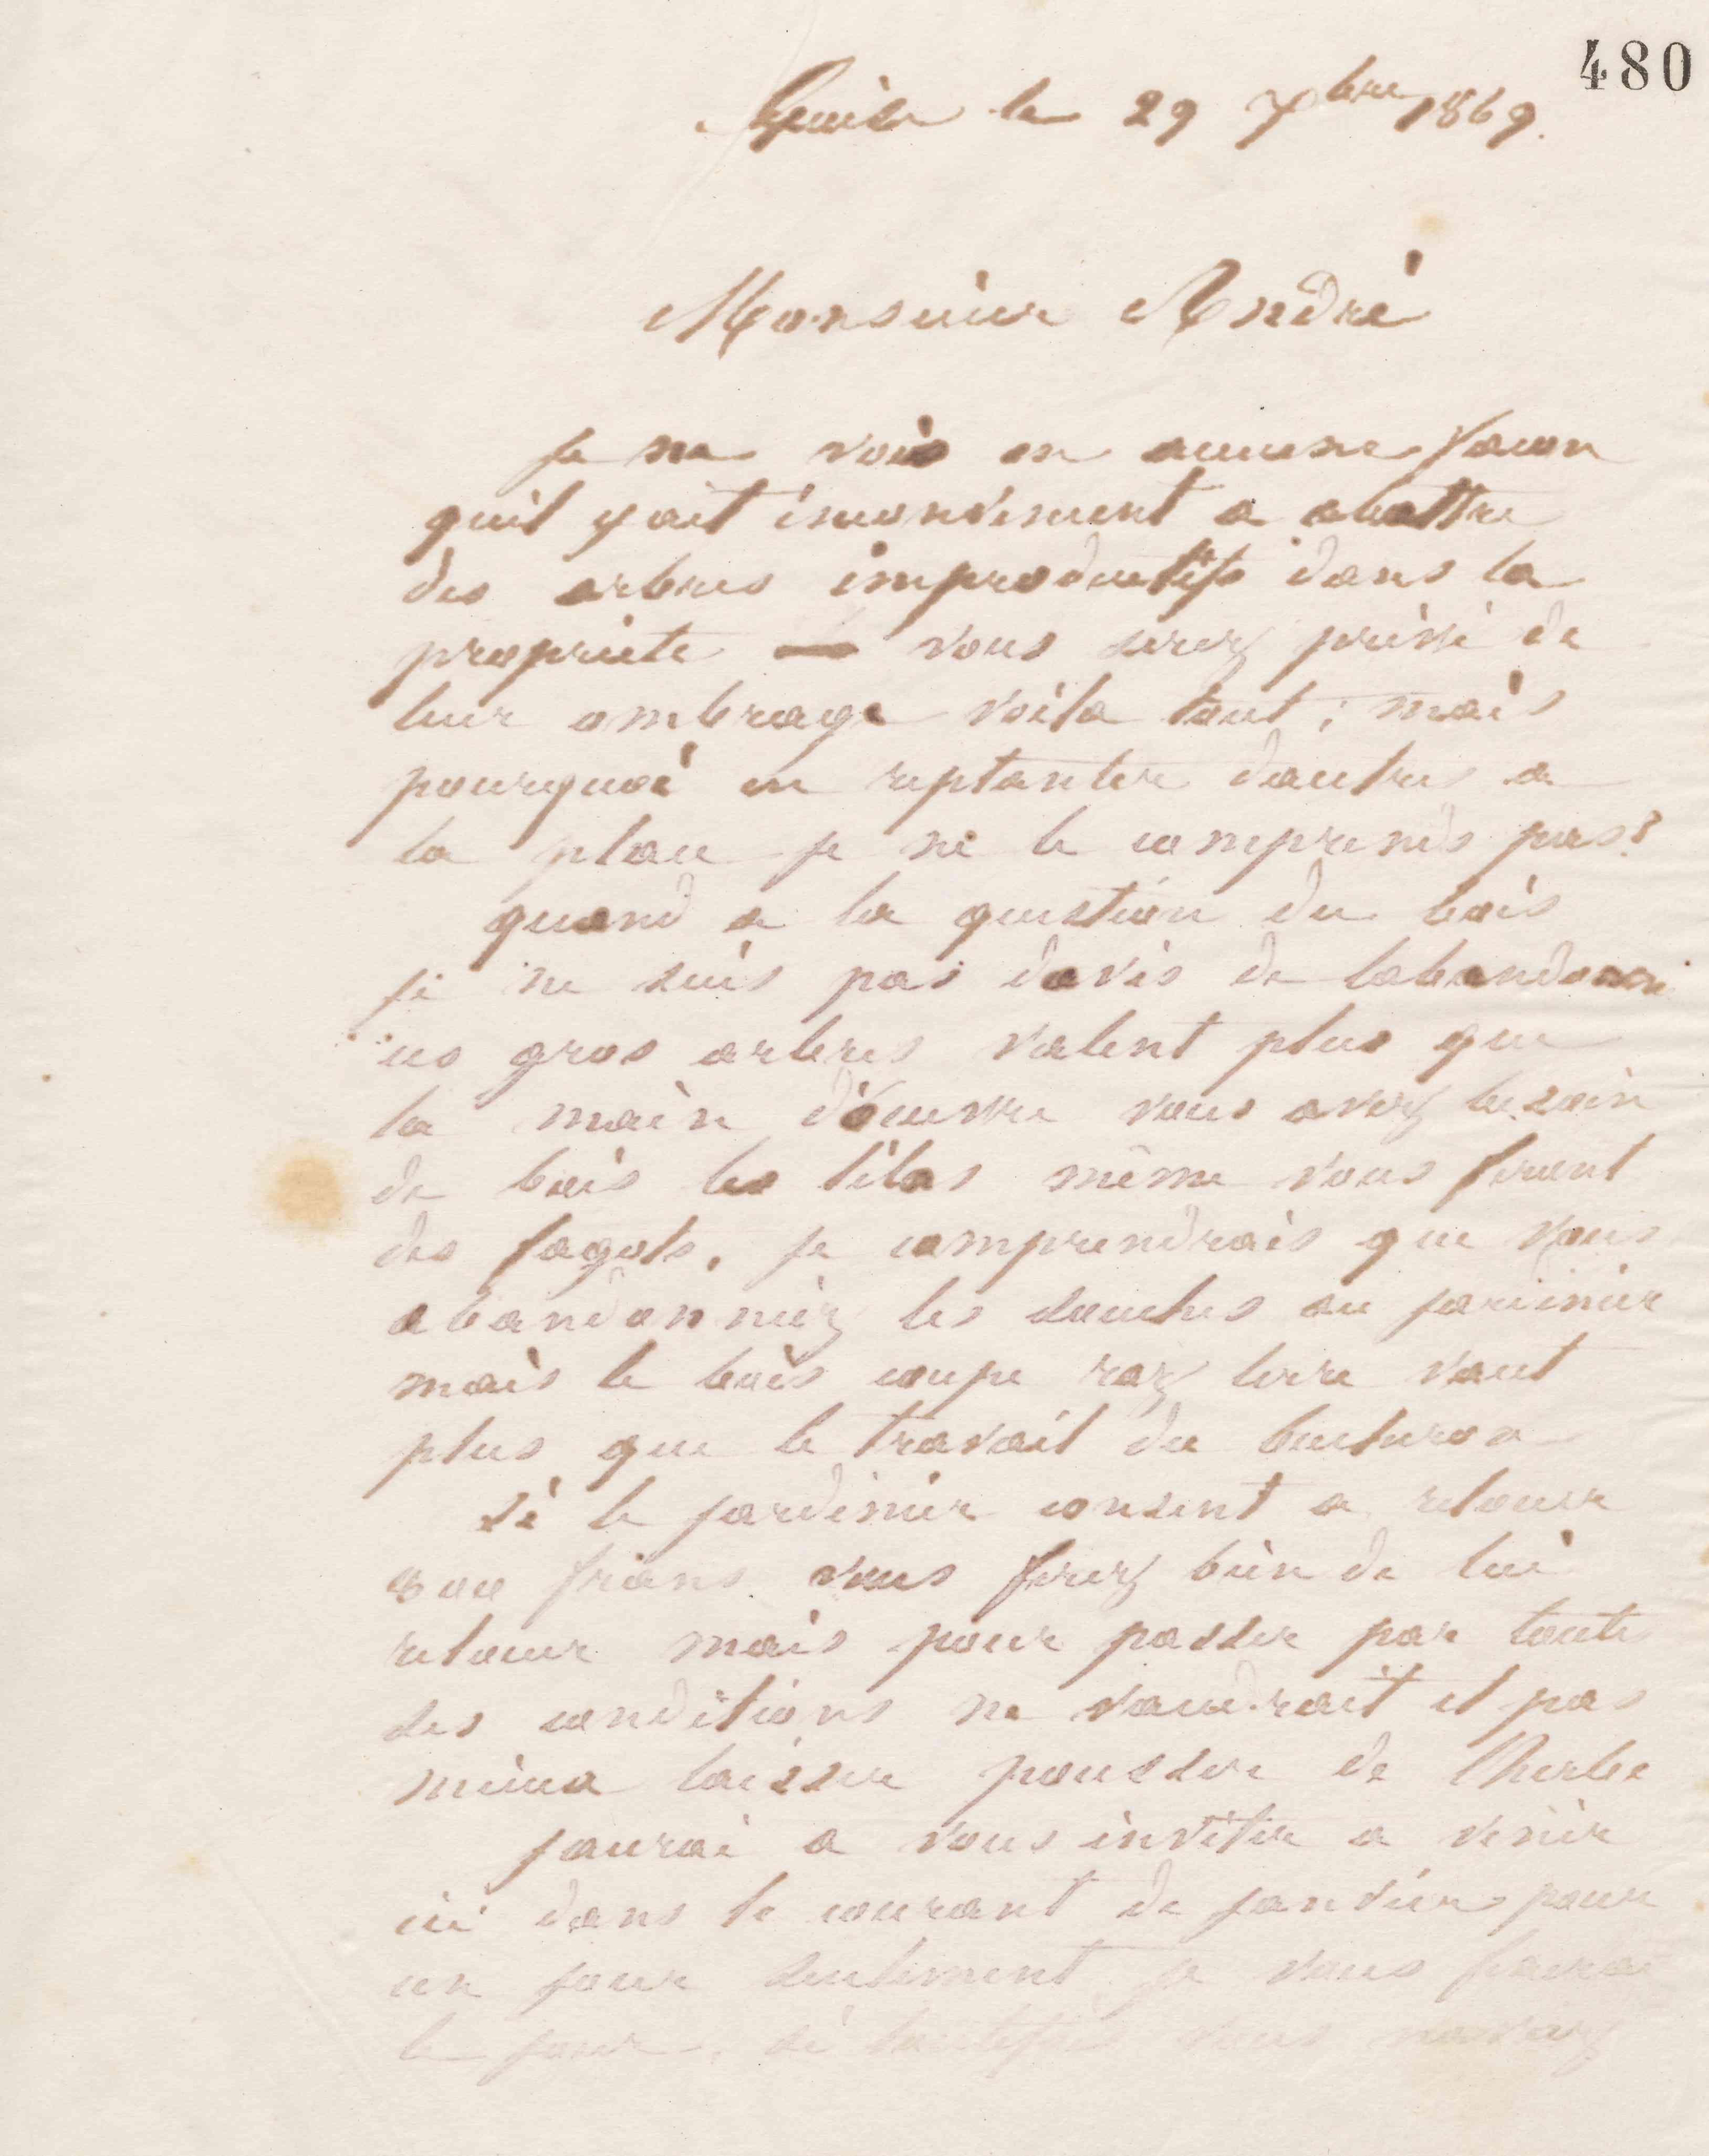 480
Guise le 29 Xbre 1869.
Monsieur André
Je ne vois en aucune facon
quil y ait inconvenient a abattre
des arbres improductifs dans la
propriete vous serez privé de
leur ombrage voila tout ; mais
pourquoi en replanter dautres a
la place je ne le comprends pas?
quand a la question du bois
je ne suis pas davis de labandonner
ces gros arbres valent plus que
la main dóeuvre vous avez besoin
de bois les lilas même vous feront
des fagots, je comprendrais que vous
abandonniez les souches au jardinier
mais le bois coupe raz terre vaut
plus que le travail du bucheron
si le jardinier consent a relouer
300 frans vous ferez bien de lui
relouer mais pour passer par toute
ses conditions ne vaudrait il pas
mieux laisser pousser de lherbe
jaurai a vous inviter a venir
ici dans le courant de janvier pour
un jour seulement je vous
le jour, si toutefois vous